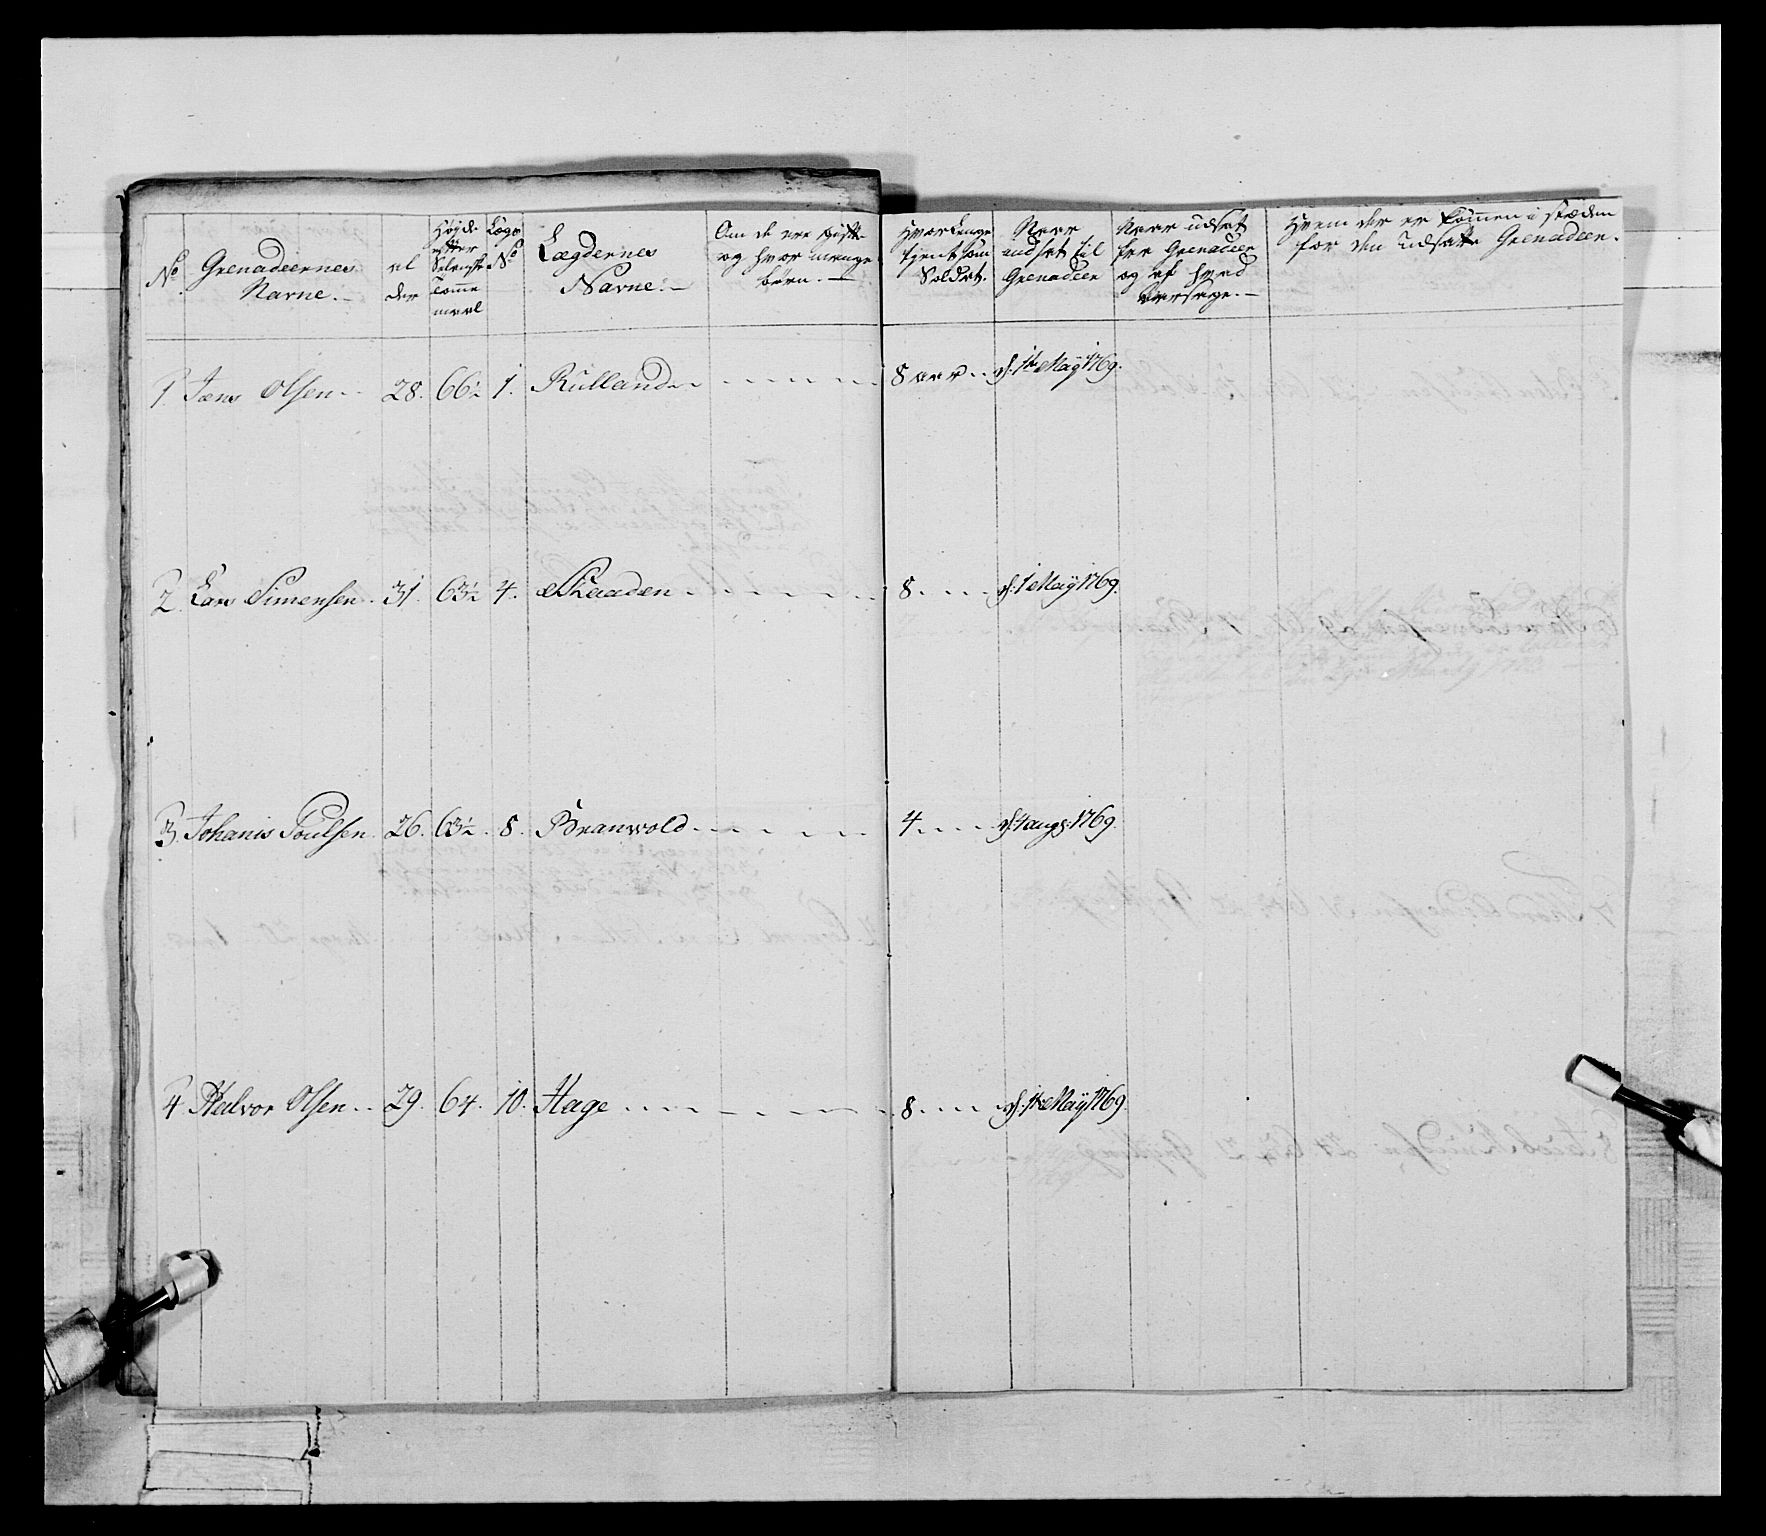 No
Grenadeernes
Navne.
al
der
Høyde
efter
Selenst
Tomme
maal
Lægs
No
Lægdernes
Navne.
Om de ere gifte
og hvor mange
børn.
Hvor lenge
tient som
Soldat.
Naar
indsat til
Grenadeer
Naar udsat
fra Grenadeer
og af hvad
Aarsage.
Hvem der er kommen i stæden
for den udsatte Grenadeer.
1. Jens Olsen 28. 66½ 1. Rulland 8 aar d. 1te Maÿ 1769.
2. Lars Simensen 31 63½ 4. Skaaden 8. d. 1 Maÿ 1769.
3. Johanis Poulsen 26. 63½ 8. Branvold 4. d. 1 aug. 1769.
4. Halvor Olsen 29. 64. 10. Hage 8. d. 1te Maÿ 1769.